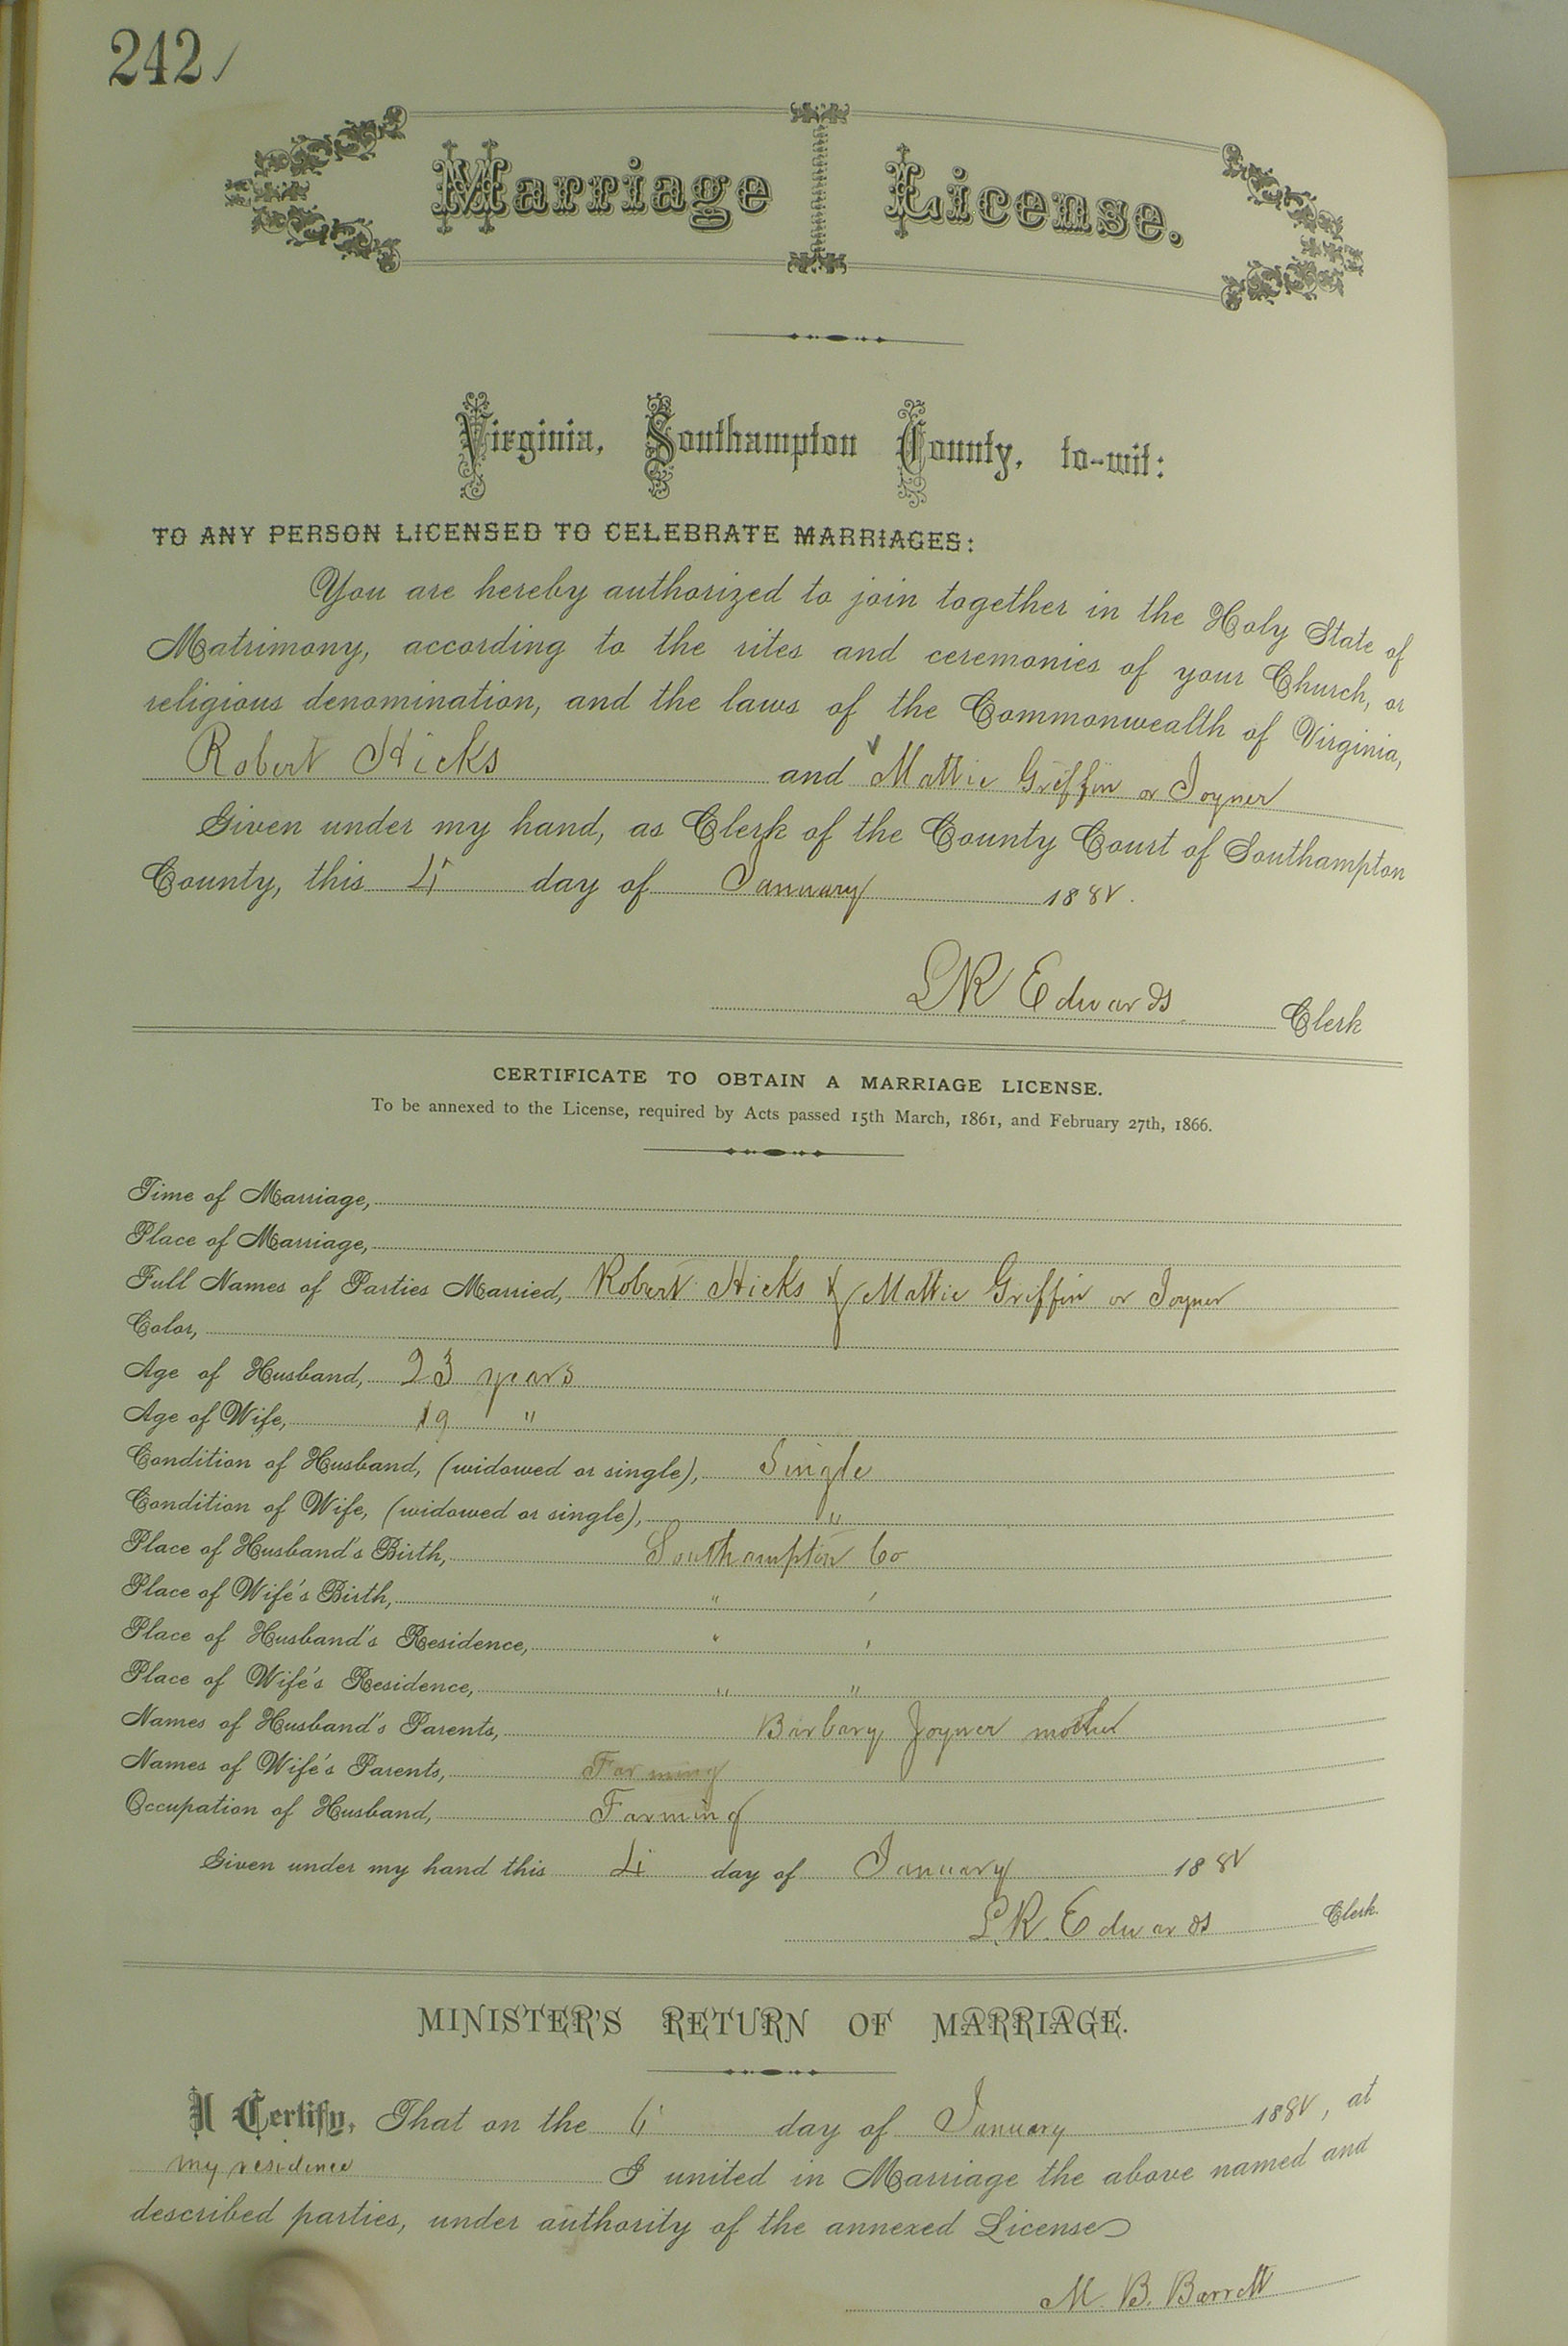 242
Marriage License.
Virginia, Southampton County, to-wit:
TO ANY PERSON LICENSED TO CELEBRATE MARRIAGES:
You are hereby authorized to join together in the Holy State of
Matrimony, according to the rites and ceremonies of your Church, or
religious denomination, and the laws of the Commonwealth of Virginia,
Robert Hicks and Mattie Griffin or Joyner
Given under my hand, as Clerk of the County Court of Southampton
County, this 4 day of January 188
L R Edwards Clerk
CERTIFICATE TO OBTAIN A MARRIAGE LICENSE.
To be annexed to the License, required by Acts passed 15th March, 1861, and February 27th, 1866.
Time of Marriage,
Place of Marriage,
Full Names of Parties Married, Robert Hicks & Mattie Griffin or Joyner
Color,
Age of Husband, 23 years
Age of Wife, 19 "
Condition of Husband, (widowed or single), Single
Condition of Wife, (widowed or single), "
Place of Husband's Birth, Southampton Co
Place of Wife's Birth, " "
Place of Husband's Residence, " "
Place of Wife's Residence, " "
Names of Husband's Parents, Barbary Joyner mother
Names of Wife's Parents, Farming
Occupation of Husband, Farming
Given under my hand this 4 day of January 188
L.R. Edwards Clerk.
MINISTER'S RETURN OF MARRIAGE.
I Certify, That on the 6 day of January 188, at
my residence I united in Marriage the above named and
described parties, under authority of the annexed License
M. B. Barrett